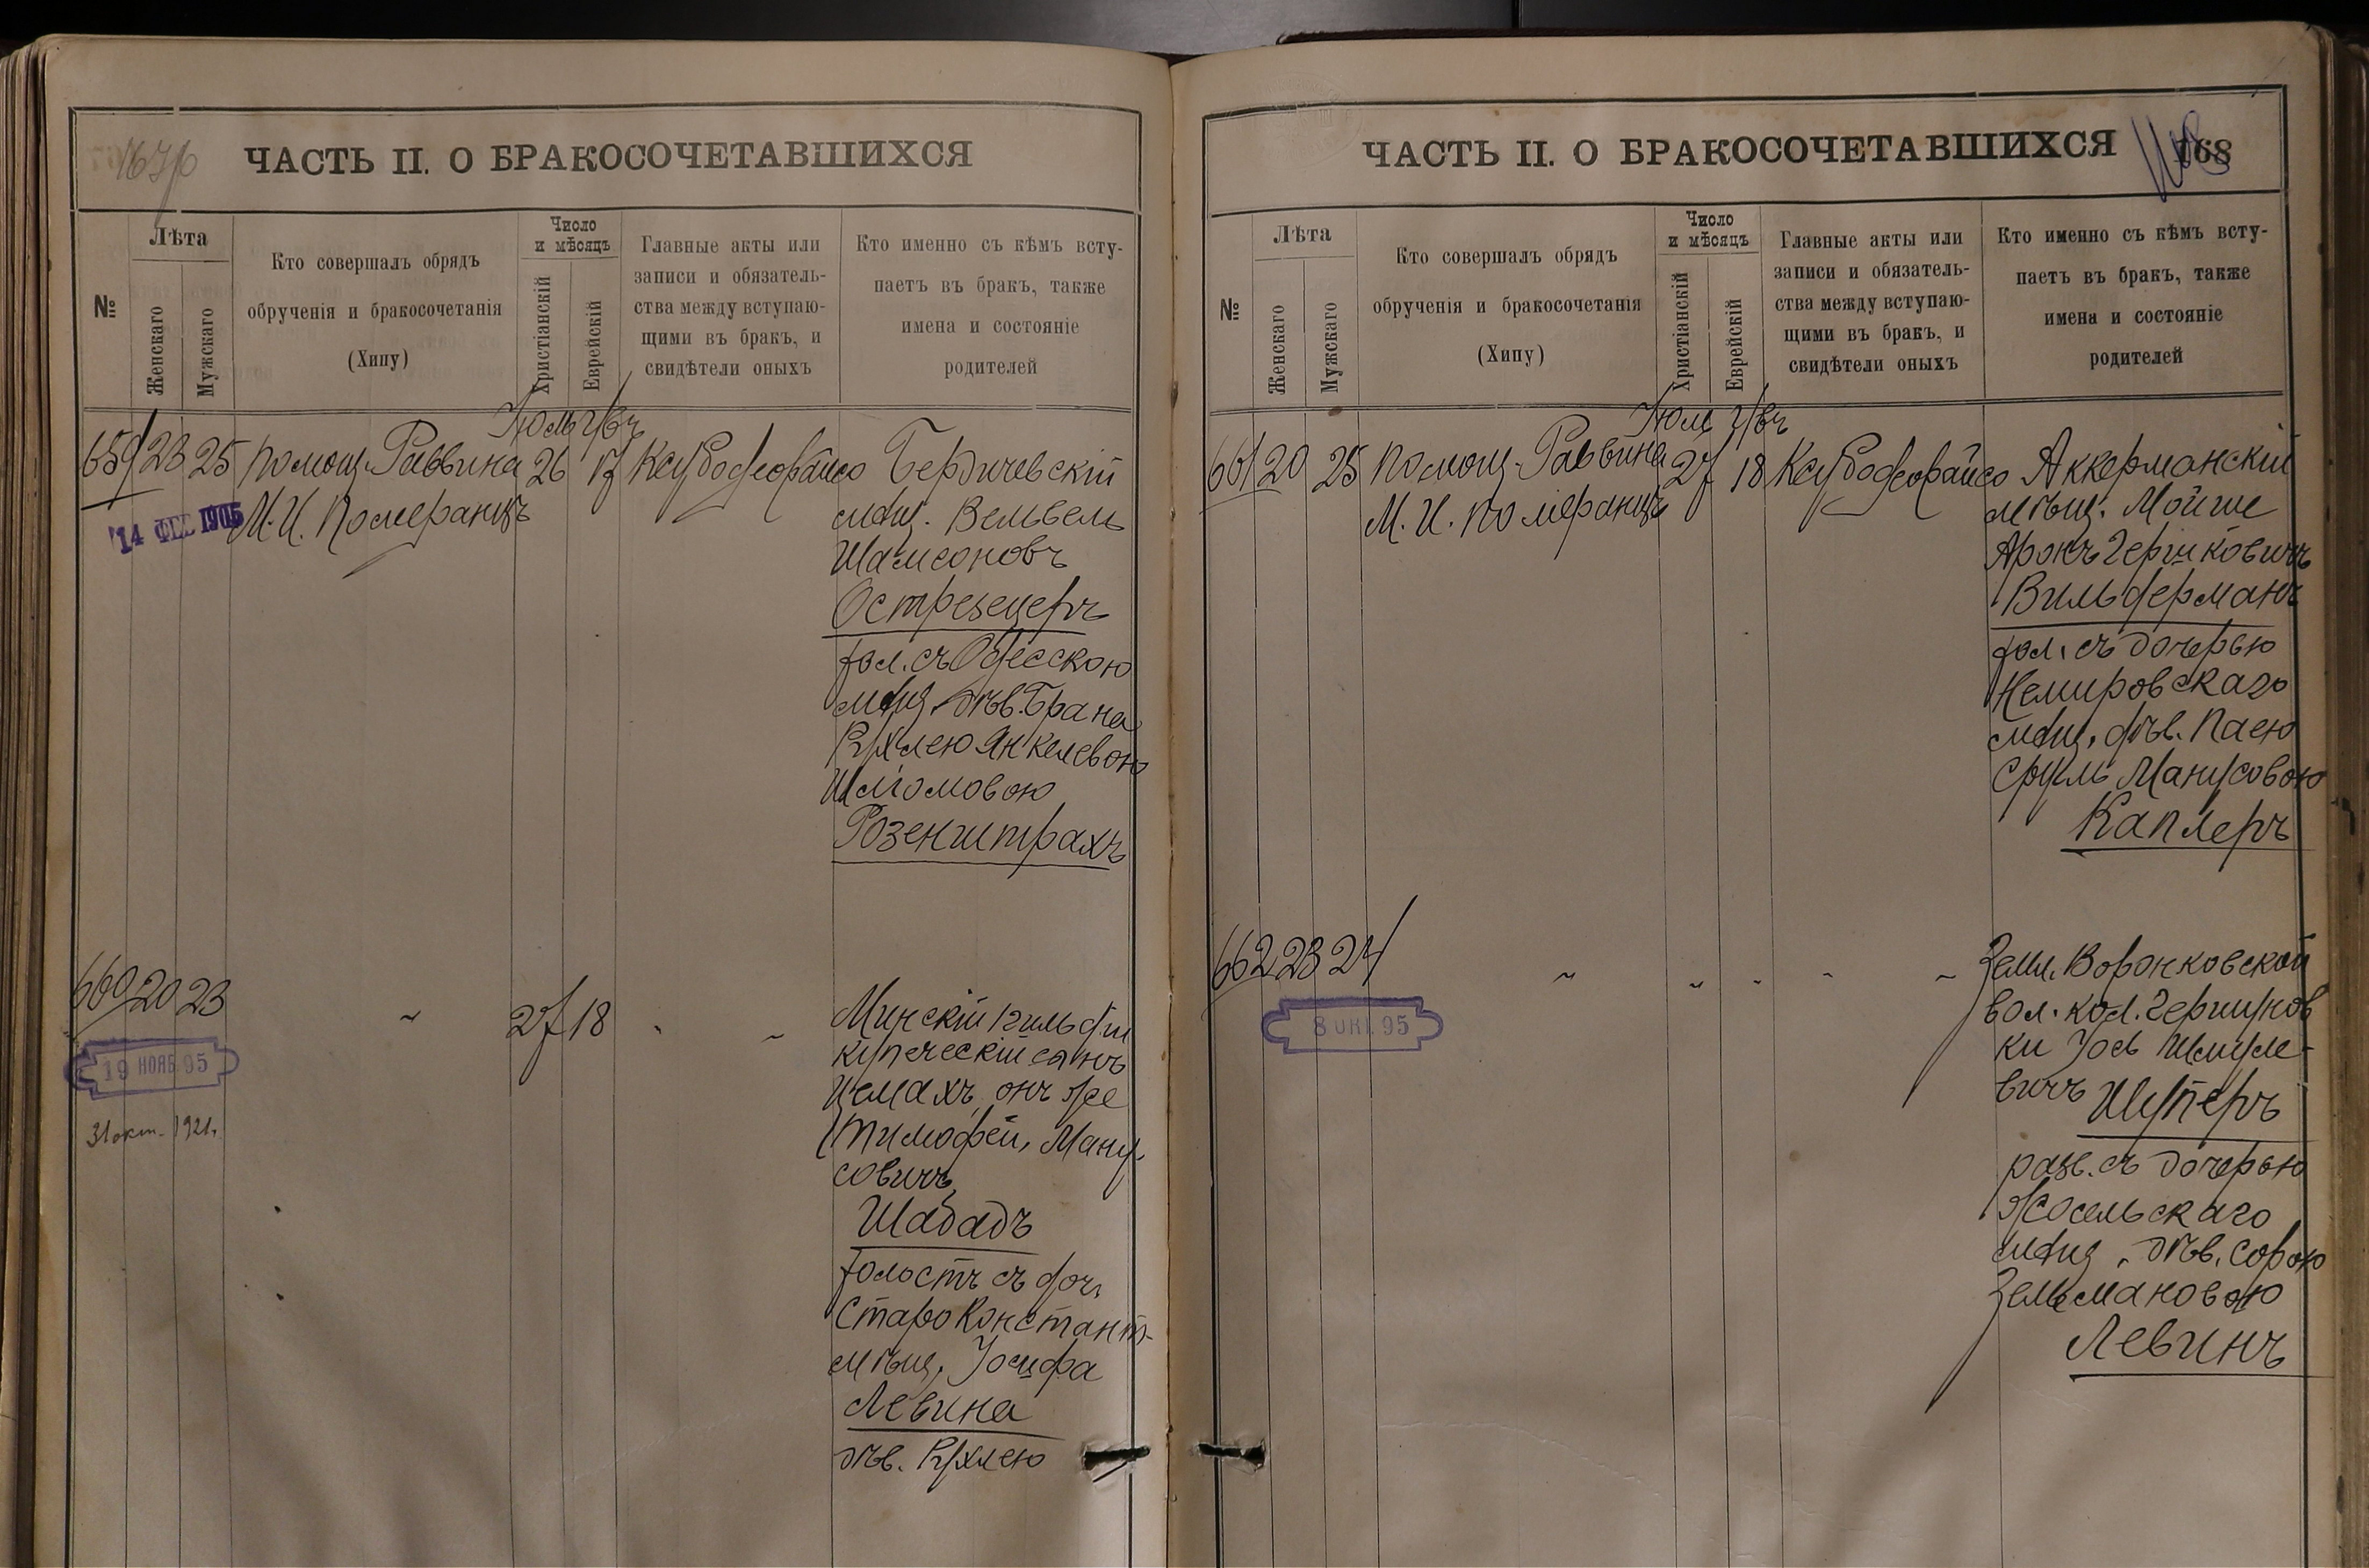 167об
ЧАСТЬ II. О БРАКОСОЧЕТАВШИХСЯ
№
Лѣта
Женскаго
Мужскаго
Кто совершалъ обрядъ
обрученія и бракосочетанія
(Хипу)
Число
и мѣсяцъ
Христіанскій
Еврейскій
Главные акты или
записи и обязатель-
ства между вступаю-
щими въ бракъ, и
свидѣтели оныхъ
Кто именно съ кѣмъ всту-
паетъ въ бракъ, также
имена и состояніе
родителей
Іюль
659 23 25 Помощ. Раввина 26 17 Бердичевскій
14 ФЕВ 1905 М. И. Померанцъ
мѣщ. Вельвель
Шамсоновъ
Острезецеръ
хол. съ Одесскою
мѣщ. дѣв. Брана
Рухлею Янкелевою
Шлiомовою
Розенштрахъ
660 20 23 27 18
19 НОЯБ 95
31 окт. 1921.
Минскій 1 гильдіи
купеческій сынъ
Цемахъ, онъ же
Тимофей, Ману-
совичъ
Шабадъ
холостъ съ доч.
СтароКонстант-
мѣщ. Іосифа
Левина
дѣв. Рухлею
ЧАСТЬ II. О БРАКОСОЧЕТАВШИХСЯ
168
№
Лѣта
Женскаго
Мужскаго
Кто совершалъ обрядъ
обрученія и бракосочетанія
(Хипу)
Число
и мѣсяцъ
Христіанскій
Еврейскій
Главные акты или
записи и обязатель-
ства между вступаю-
щими въ бракъ, и
свидѣтели оныхъ
Кто именно съ кѣмъ всту-
паетъ въ бракъ, также
имена и состояніе
родителей
Іюль
661 20 25 Помощ. Раввина 27 18 Аккерманскій
М. И. Померанцъ
мѣщ. Мойше
Аронъ Гершковичъ
Вильдерманъ
хол. съ дочерью
Немировскаго
мѣщ. дѣв. Паею
Сруль Манусовою
Каплеръ
662 23 24
8 ОКТ. 95
Земл. Воронковской
вол. кол. Гершунов
ки Іось Шмуле-
вичъ Шуперъ
разв. съ дочерью
Жосельскаго
мѣщ. дѣв. Сорою
Зельмановою
Левинъ